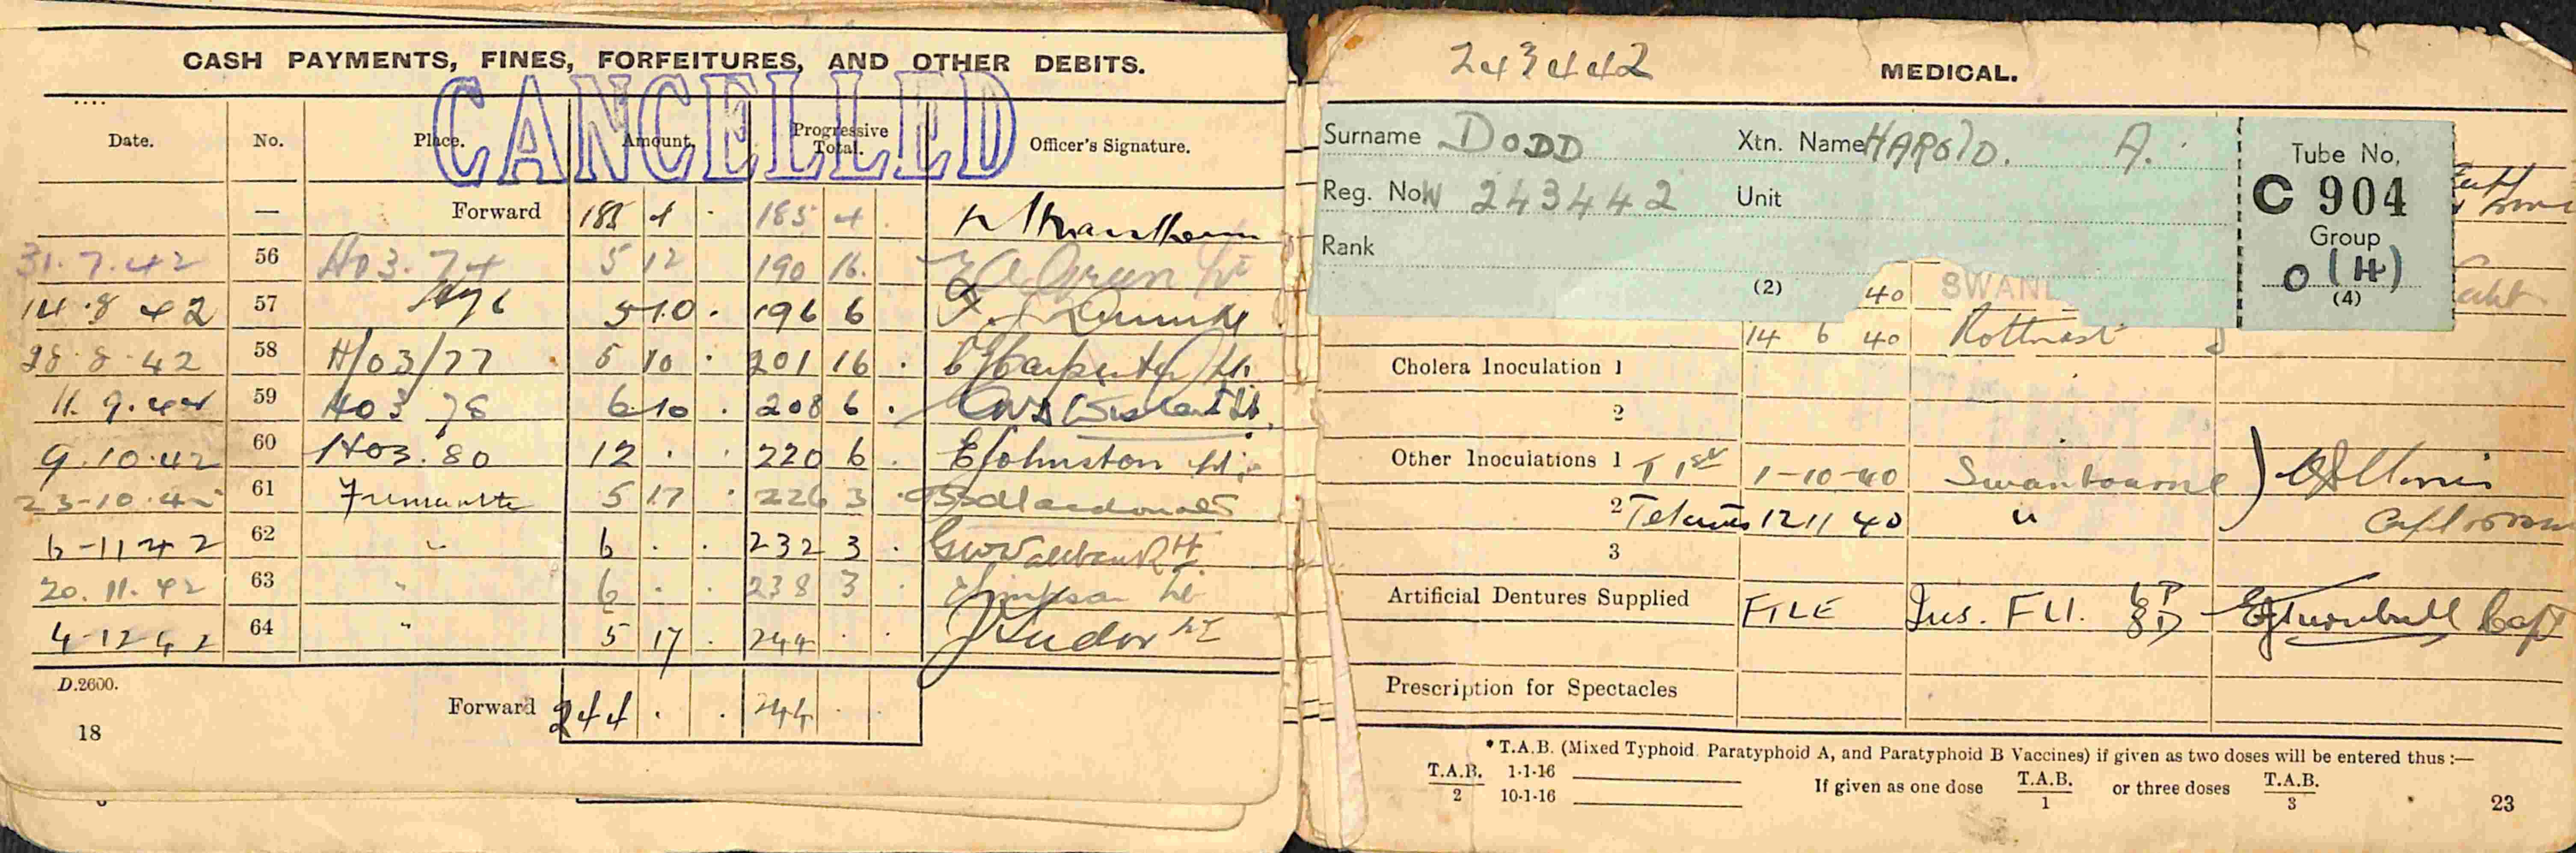 CASH PAYMENTS, FINES, FORFEITURES, AND OTHER DEBITS.
CANCELLED
Date. No. Place. Amount. Progressive Total. Officer's Signature.
— Forward 185 4 · 185 4 ·
31.7.42 56 H03.74 5 12 190 16.
14.8 42 57 5 10 . 196 6
28.8.42 58 H/03/77 5 10 . 201 16 .
11.9.42 59 H03 78 6 10 . 208 6 .
9.10.42 60 H03.80 12 . . 220 6 . E Johnston Lt.
23-10.42 61 Fremantle 5 17 . 226 3 .
6-11 42 62 " 6 . . 232 3 .
20.11.42 63 " 6 . . 238 3 . Simpson Lt
4-12 42 64 " 5 17 . 244 . . J Tudor Lt
D.2600.
Forward 244 . . 244 . .
18
243442
MEDICAL.
Surname DODD Xtn. Name HAROLD. A.
Reg. No. W 243442 Unit
Rank
(2)
Tube No.
C 904
Group
O (H)
(4)
40 SWAN
14 6 40 Rottnest
Cholera Inoculation 1
2
Other Inoculations 1 T 1st 1-10-40 Swanbourne
2 Tetanus 12 11 40 "
3 Capt
Artificial Dentures Supplied Jus. FU. E J Turnbull Capt
Prescription for Spectacles
* T.A.B. (Mixed Typhoid. Paratyphoid A, and Paratyphoid B Vaccines) if given as two doses will be entered thus :—
T.A.B. 1-1-16
2 10-1-16
If given as one dose T.A.B. 1 or three doses T.A.B. 3
23